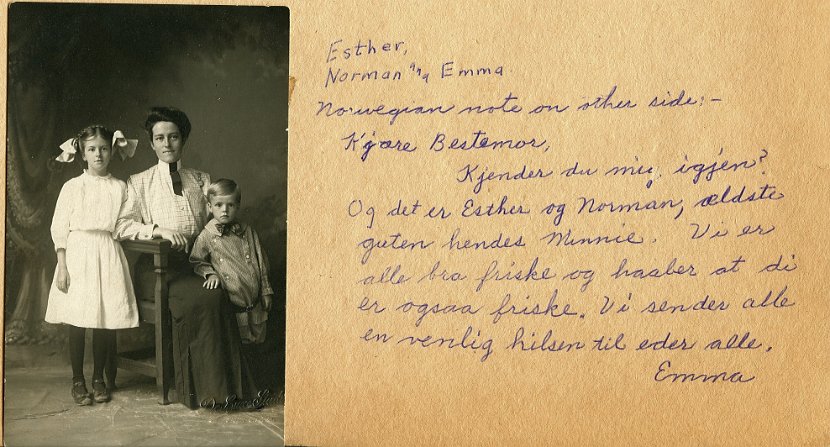 Esther,
Norman and Emma
Norwegian note on other side:-
Kjære Bestemor,
Kjender du mig igjen?
Og det er Esther og Norman, ældste
guten hendes Minnie. Vi er
alle bra friske og haaber at di
er ogsaa friske. Vi sender alle
en venlig hilsen til eder alle.
Emma